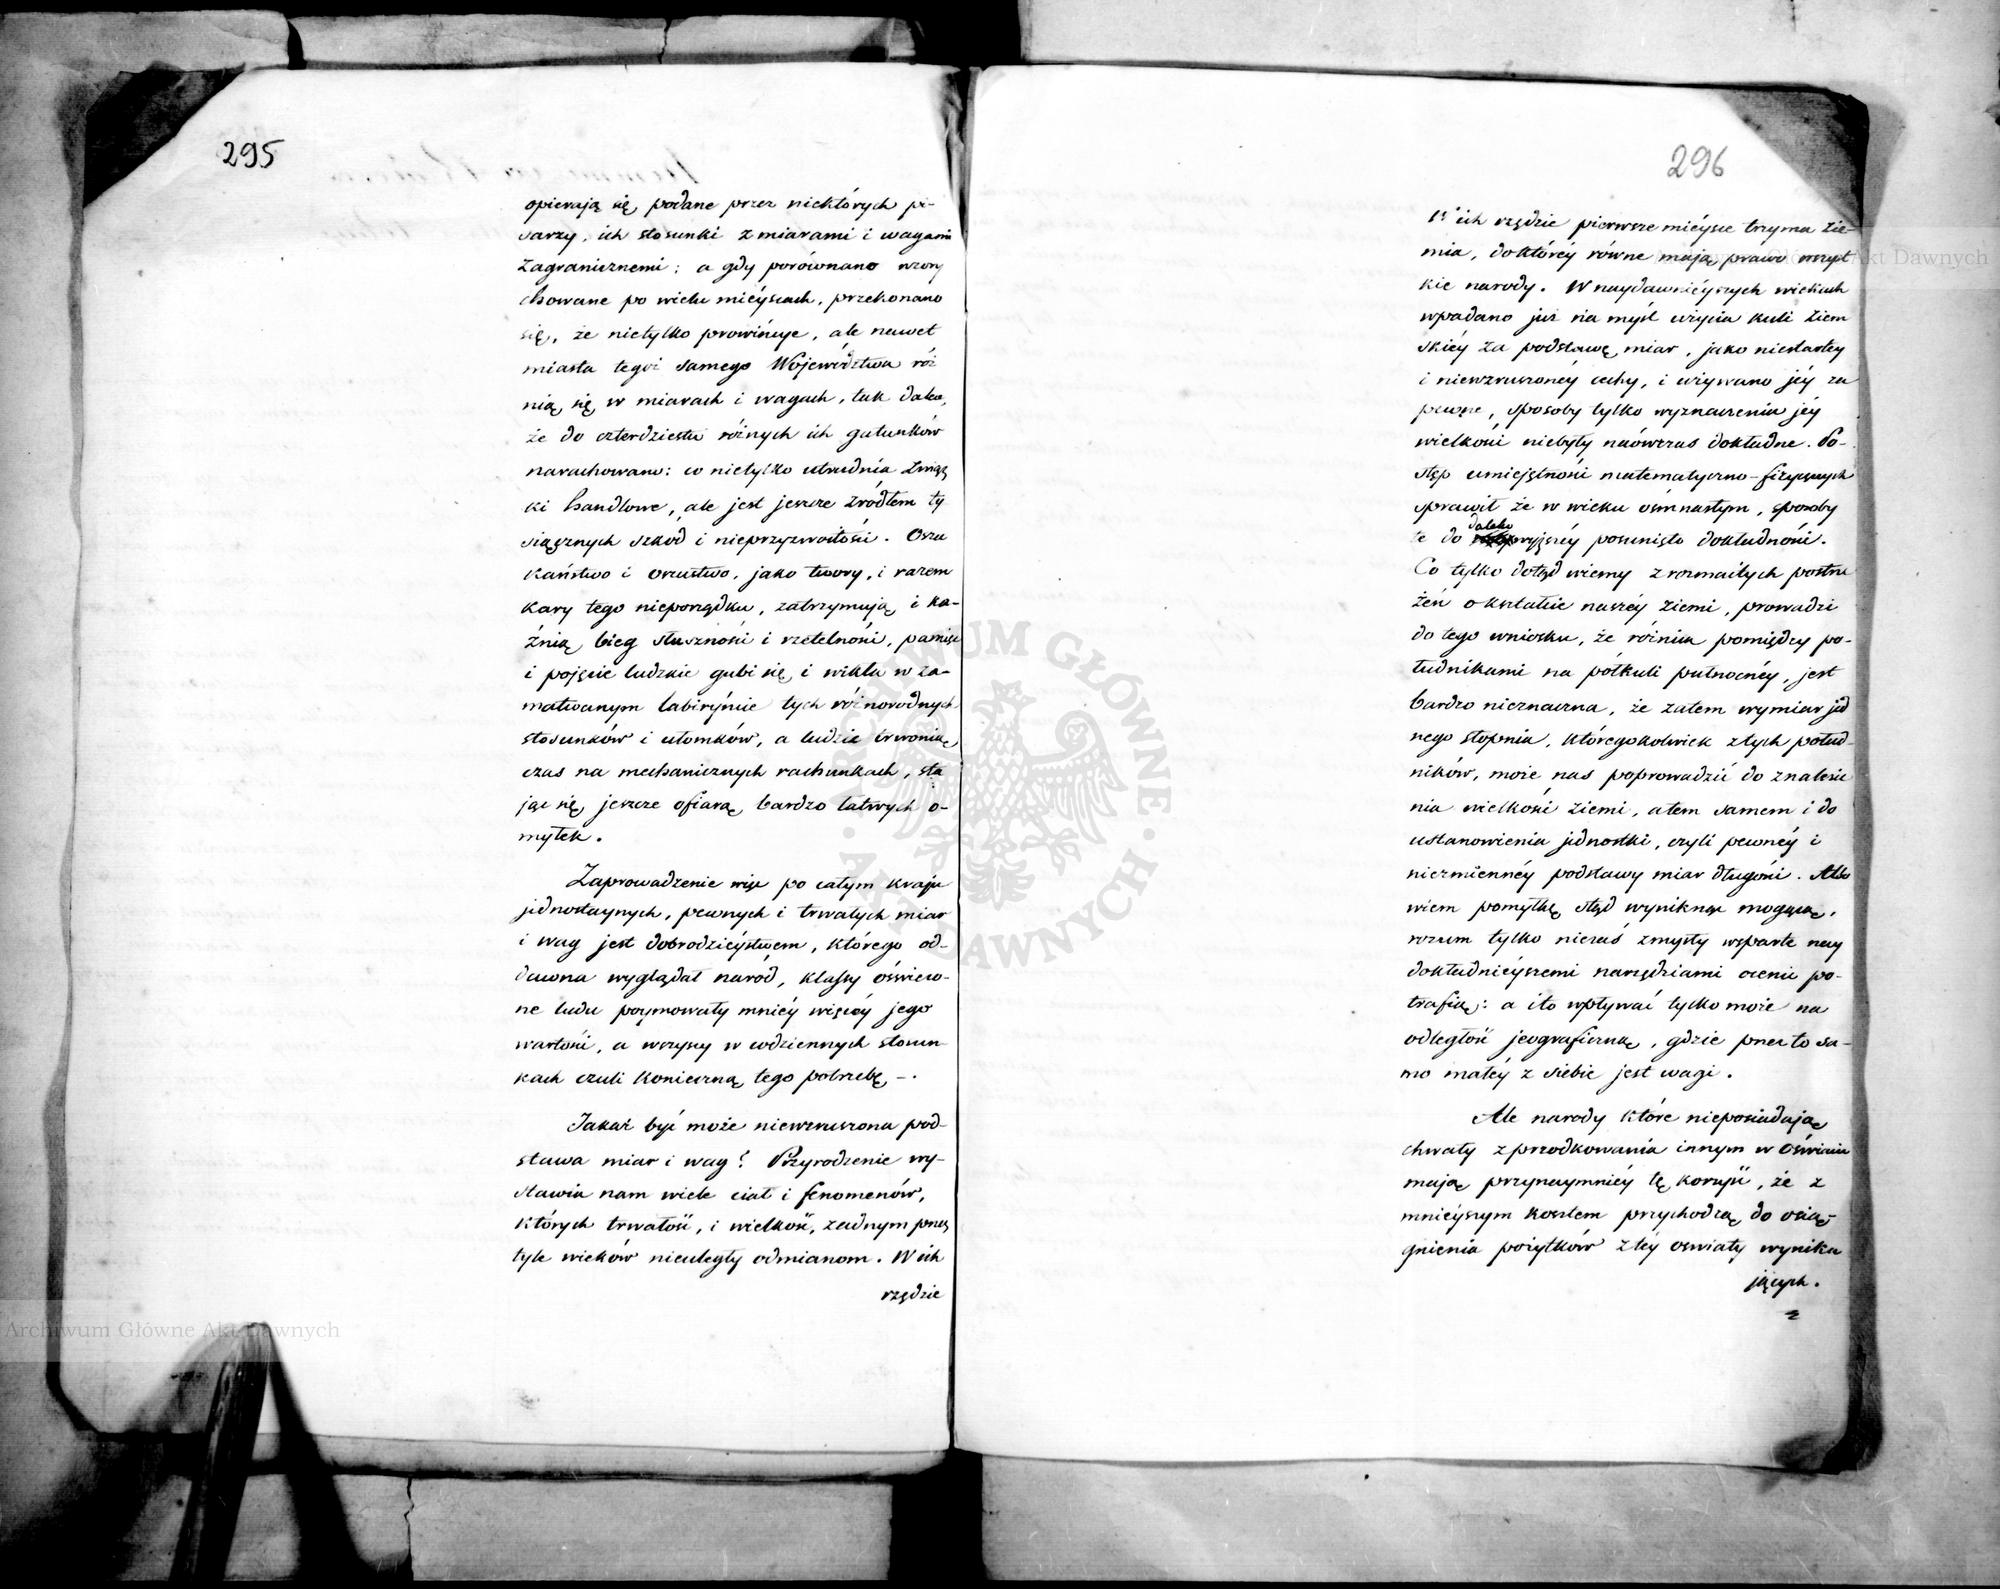 295
opierają się podane przez niektórych pi-
sarzy, ich stosunki z miarami i wagami
zagranicznemi: a gdy porównano wzory
chowane po wielu mieyscach, przekonano
się, że nietylko prowincye, ale nawet
miasta tegoż samego Województwa róż
nią się w miarach i wagach, tak dalece,
że do czterdziestu różnych ich gatunków
narachowano: co nietylko utrudnia związ
ki handlowe, ale jest jeszcze źródłem ty
siącznych szkód i nieprzyzwoitości. Oszu
kaństwo i oszustwo, jako twory, i razem
kary tego nieporządku, zatrzymują i ka-
źnią bieg słuszności i rzetelności, pamięć
i pojęcie ludzkie gubi się i wikła w za-
matwanym labiryńcie tych różnorodnych
stosunków i ułomków, a ludzie trwoniąc
czas na mechanicznych rachunkach, sta
jąc się jeszcze ofiarą bardzo łatwych o-
myłek.
Zaprowadzenie więc po całym kraju
jednostaynych, pewnych i trwałych miar
i wag jest dobrodzieystwem, którego od-
dawna wyglądał naród, klassy oświeco-
ne ludu poymowały mniéy więcéy jego
wartości, a wszyscy w codziennych stosun-
kach czuli konieczną tego potrzebę -.
Jakaż być może niewzruszona pod-
stawa miar i wag? Przyrodzenie wy-
stawia nam wiele ciał i fenomenów,
których trwałość, i wielkość, żadnym przez
tyle wieków nieuległy odmianom. W ich
rzędzie
296
W ich rzędzie pierwsze mieysce trzyma zie-
mia, do któréy równe mają prawo wszyst
kie narody. W naydawniéyszych wiekach
wpadano już na myśl użycia kuli ziem
skiéy za podstawę miar, jako niestartéy
i niewzruszonéy cechy, i używano jéy za
pewne, sposoby tylko wyznaczenia jéy
wielkości niebyły naówczas dokładne. Po-
stęp umiejętności matematyczno-fizycznych
sprawił że w wieku ośmnastym, sposoby
te do daleko wyższéy posunięto dokładności.
Co tylko dotąd wiemy z rozmaitych postrze
żeń o kształcie naszéy ziemi, prowadzi
do tego wniosku, że różnica pomiędzy po-
łudnikami na półkuli północnéy, jest
bardzo nieznaczna, że zatem wymiar jed
nego stopnia, któregokolwiek z tych połud-
ników, może nas poprowadzić do znalezie
nia wielkości ziemi, a tem samem i do
ustanowienia jednostki, czyli pewnéy i
niezmiennéy podstawy miar długości. Albo
wiem pomyłkę stąd wyniknąć mogącą,
rozum tylko niezaś zmysły wsparte nay
dokładniéyszemi narzędziami ocenić po-
trafią: a i to wpływać tylko może na
odległość jeograficzną, gdzie przez to sa-
mo małéy z siebie jest wagi.
Ale narody które nieposiadają
chwały z przodkowania innym w oświacie
mają przynaymniéy tę korzyść, że z
mniéyszym kosztem przychodzą do osią-
gnienia pożytków z téy oświaty wynika
jących.
ARCHIWUM GŁÓWNE AKT DAWNYCH
Archiwum Główne Akt Dawnych
Archiwum Główne Akt Dawnych